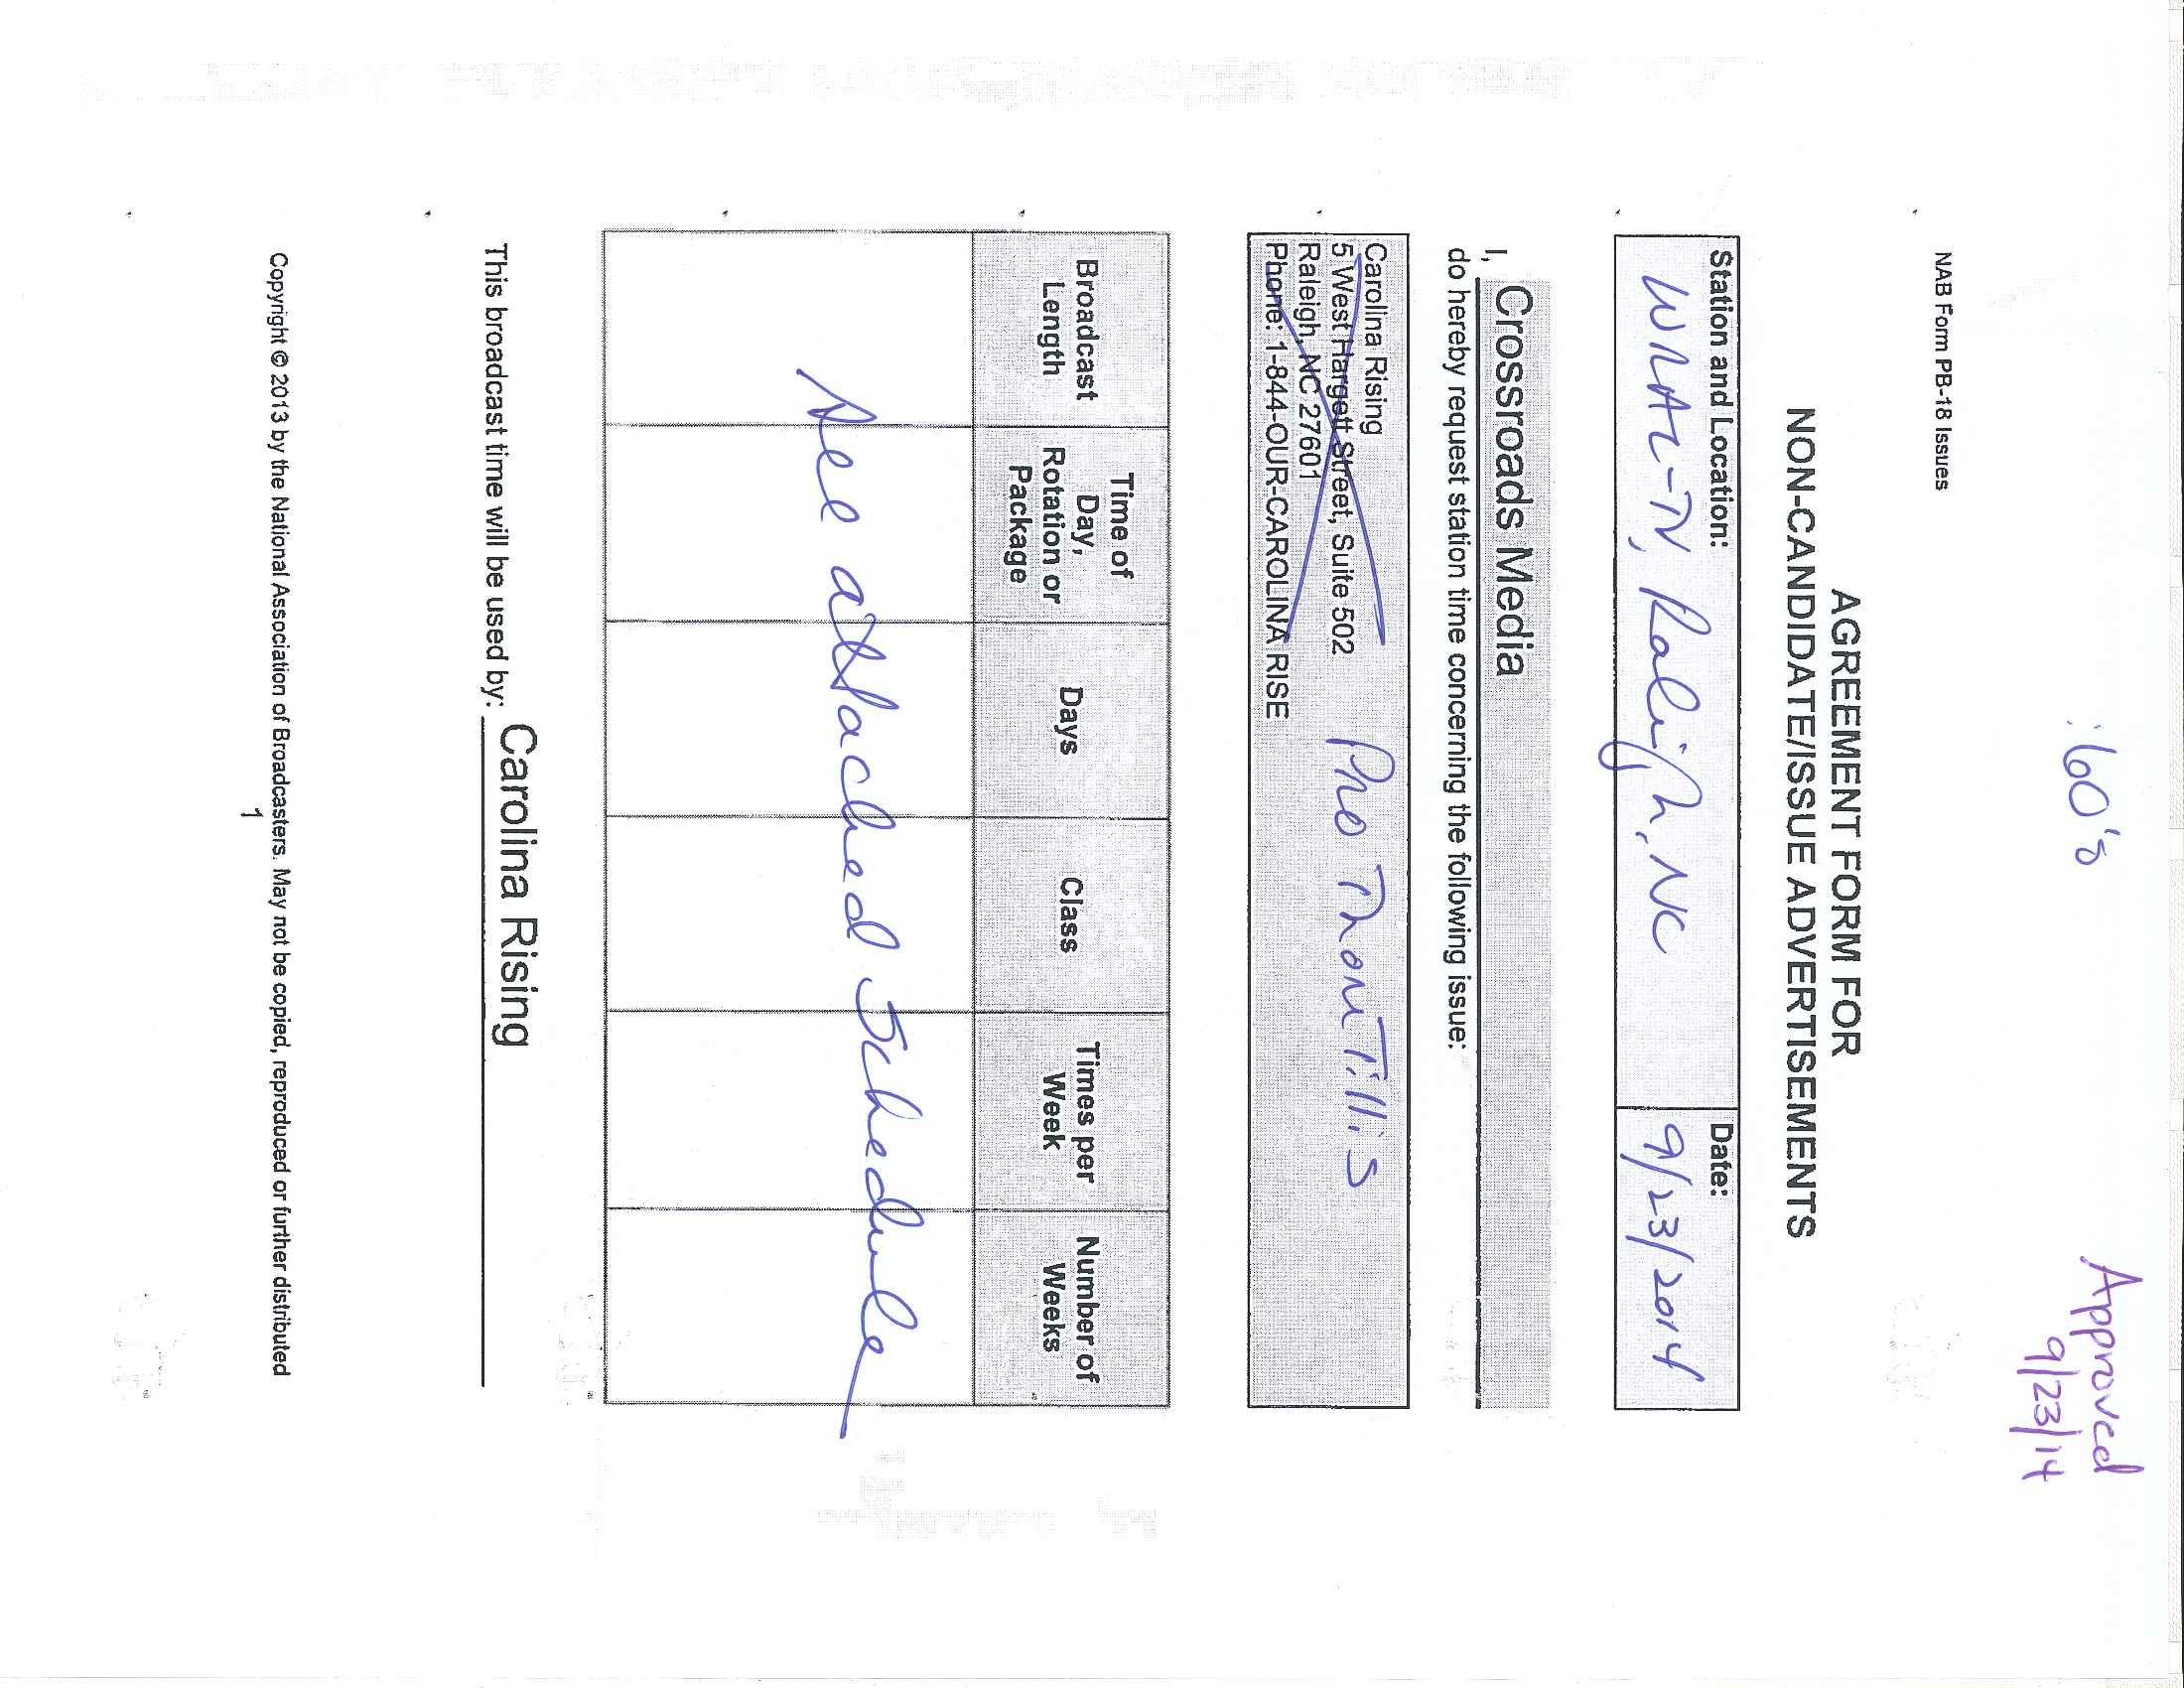 :60's
Approved
9/23/14
NAB Form PB-18 Issues
AGREEMENT FORM FOR
NON-CANDIDATE/ISSUE ADVERTISEMENTS
Station and Location:
WRAL-TV, Raleigh, NC
Date:
9/23/2014
I, Crossroads Media
do hereby request station time concerning the following issue:
Carolina Rising
5 West Hargett Street, Suite 502
Raleigh, NC 27601
Phone: 1-844-OUR-CAROLINA RISE
Pro Thom Tillis
Broadcast
Length
Time of
Day,
Rotation or
Package
Days
Class
Times per
Week
Number of
Weeks
See attached Schedule
This broadcast time will be used by: Carolina Rising
Copyright © 2013 by the National Association of Broadcasters. May not be copied, reproduced or further distributed
1